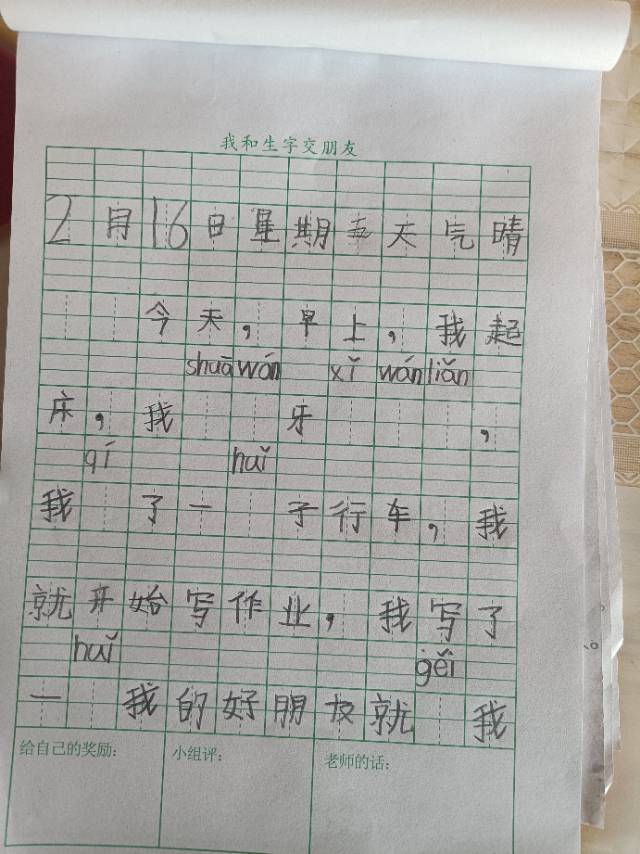 我和生字交朋友
2月16日星期五天气晴
今天，早上，我起
shuā wán xǐ wán liǎn
床，我牙，
qí huǐ
我了一子行车，我
就开始写作业，我写了
huǐ gěi
一我的好朋友就我
给自己的奖励：
小组评：
老师的话：